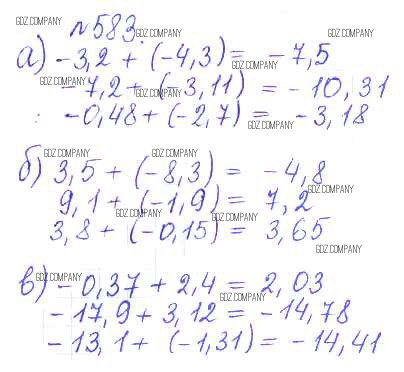 GDZ.COMPANY GDZ.COMPANY
№583.
GDZ.COMPANY
а) -3,2 + (-4,3) = -7,5
GDZ.COMPANY
GDZ.COMPANY
-7,2 + (-3,11) = -10,31
GDZ.COMPANY
-0,48 + (-2,7) = -3,18
GDZ.COMPANY
GDZ.COMPANY GDZ.COMPANY
б) 3,5 + (-8,3) = -4,8
GDZ.COMPANY GDZ.COMPANY
9,1 + (-1,9) = 7,2
GDZ.COMPANY GDZ.COMPANY
3,8 + (-0,15) = 3,65
GDZ.COMPANY
GDZ.COMPANY
в) -0,37 + 2,4 = 2,03
GDZ.COMPANY
-17,9 + 3,12 = -14,78
-13,1 + (-1,31) = -14,41